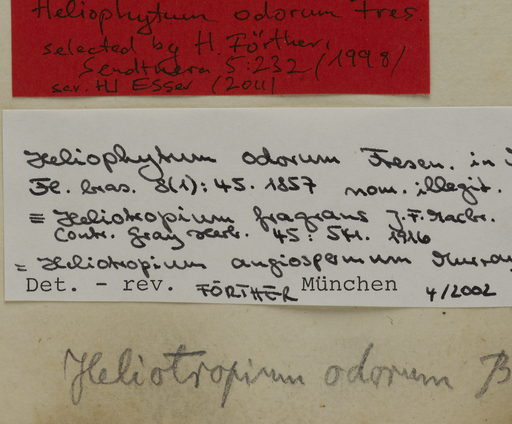 Heliophytum odorum Fres.
selected by H. Förther,
Sendtnera 5:232/(1998)
scr. HJ Esser (2011)
Heliophytum odorum Fresen. in
Fl. bras. 8(1): 45. 1857 nom. illegit.
≡ Heliotropium fragrans J.F. Macbr.
Contr. Gray Herb. 45: 1916
= Heliotropium angiospermum Murray
Det. - rev. FÖRTHER München 4/2002
Heliotropium odorum B